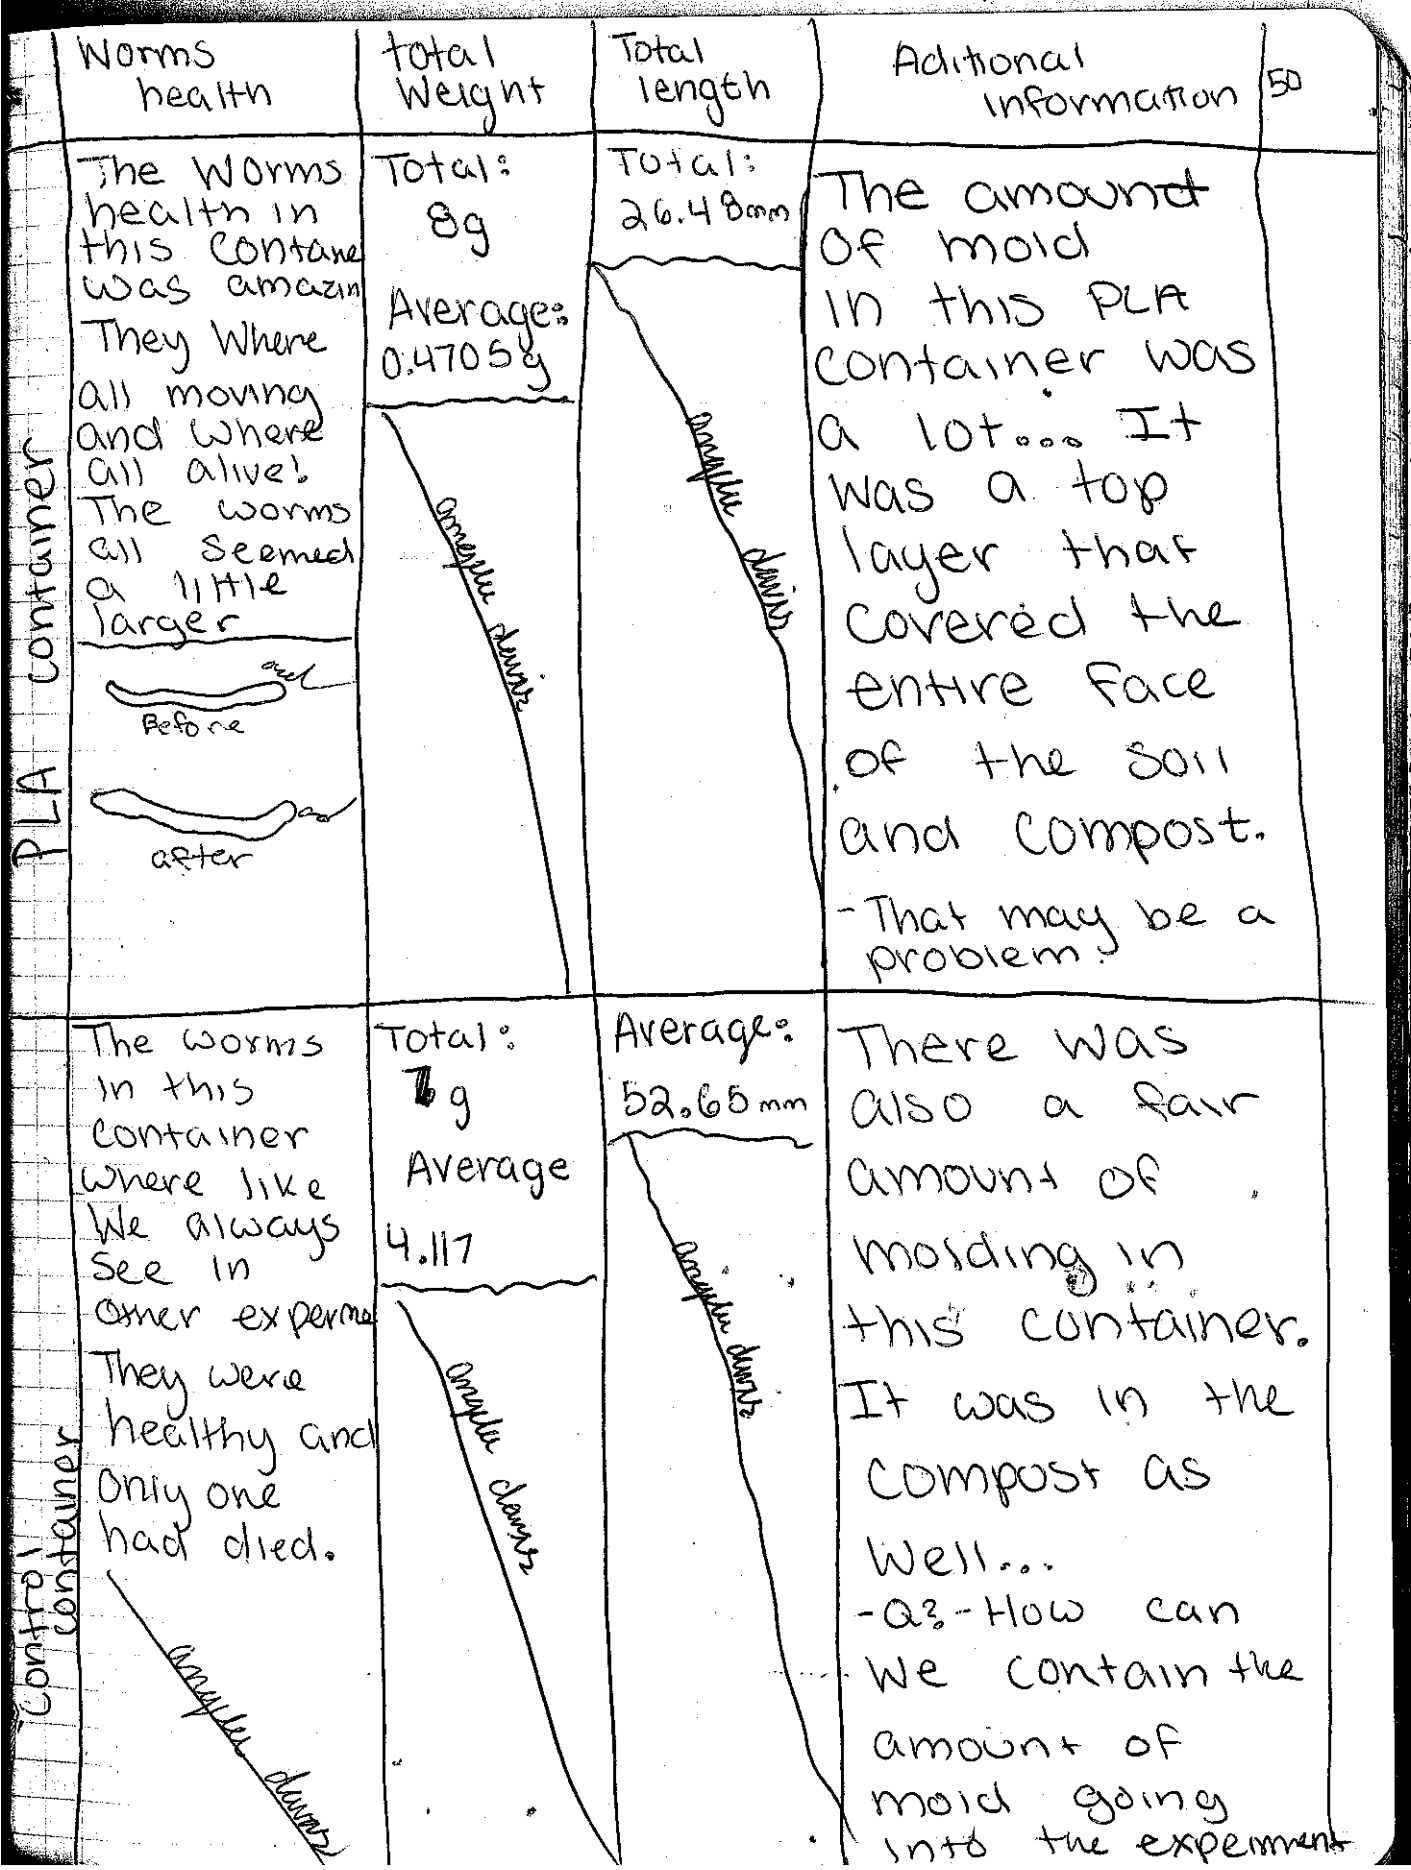 Worms
health
total
Weight
Total
length
Aditional
information
50
PLA container
The Worms
health in
this contane
was amazin
They Where
all moving
and where
all alive!
The worms
all seemed
a little
larger
Before
after
Total:
8g
Average:
0.4705g
Total:
26.48mm
The amount
of mold
in this PLA
container was
a lot... It
was a top
layer that
covered the
entire face
of the soil
and compost.
-That may be a
problem?
Control
container
The worms
in this
container
where like
We always
see in
other experme
They were
healthy and
only one
had died.
Total:
g
Average
4.117
Average:
52.65mm
There was
also a fair
amount of
molding in
this container.
It was in the
compost as
well...
-Q?-How can
we contain the
amount of
mold going
into the experiment